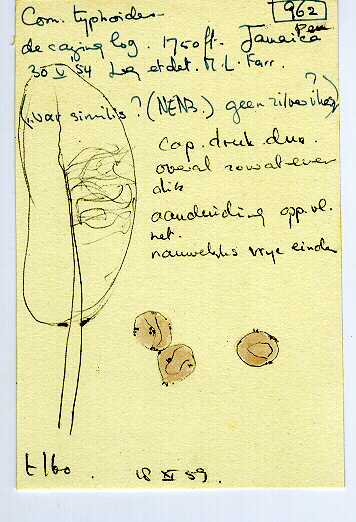 962
Com. typhoides
decaying log. 1750 ft. Jamaica
30 V 54 Leg et det. M. L. Farr.
(var similis? (NENB.) geen zilverihey?)
cap. druk. dun.
overal zowat even
dik
aanduiding opp. vl.
net.
nauwelijks vrije einden
t/60
18 XI 59.